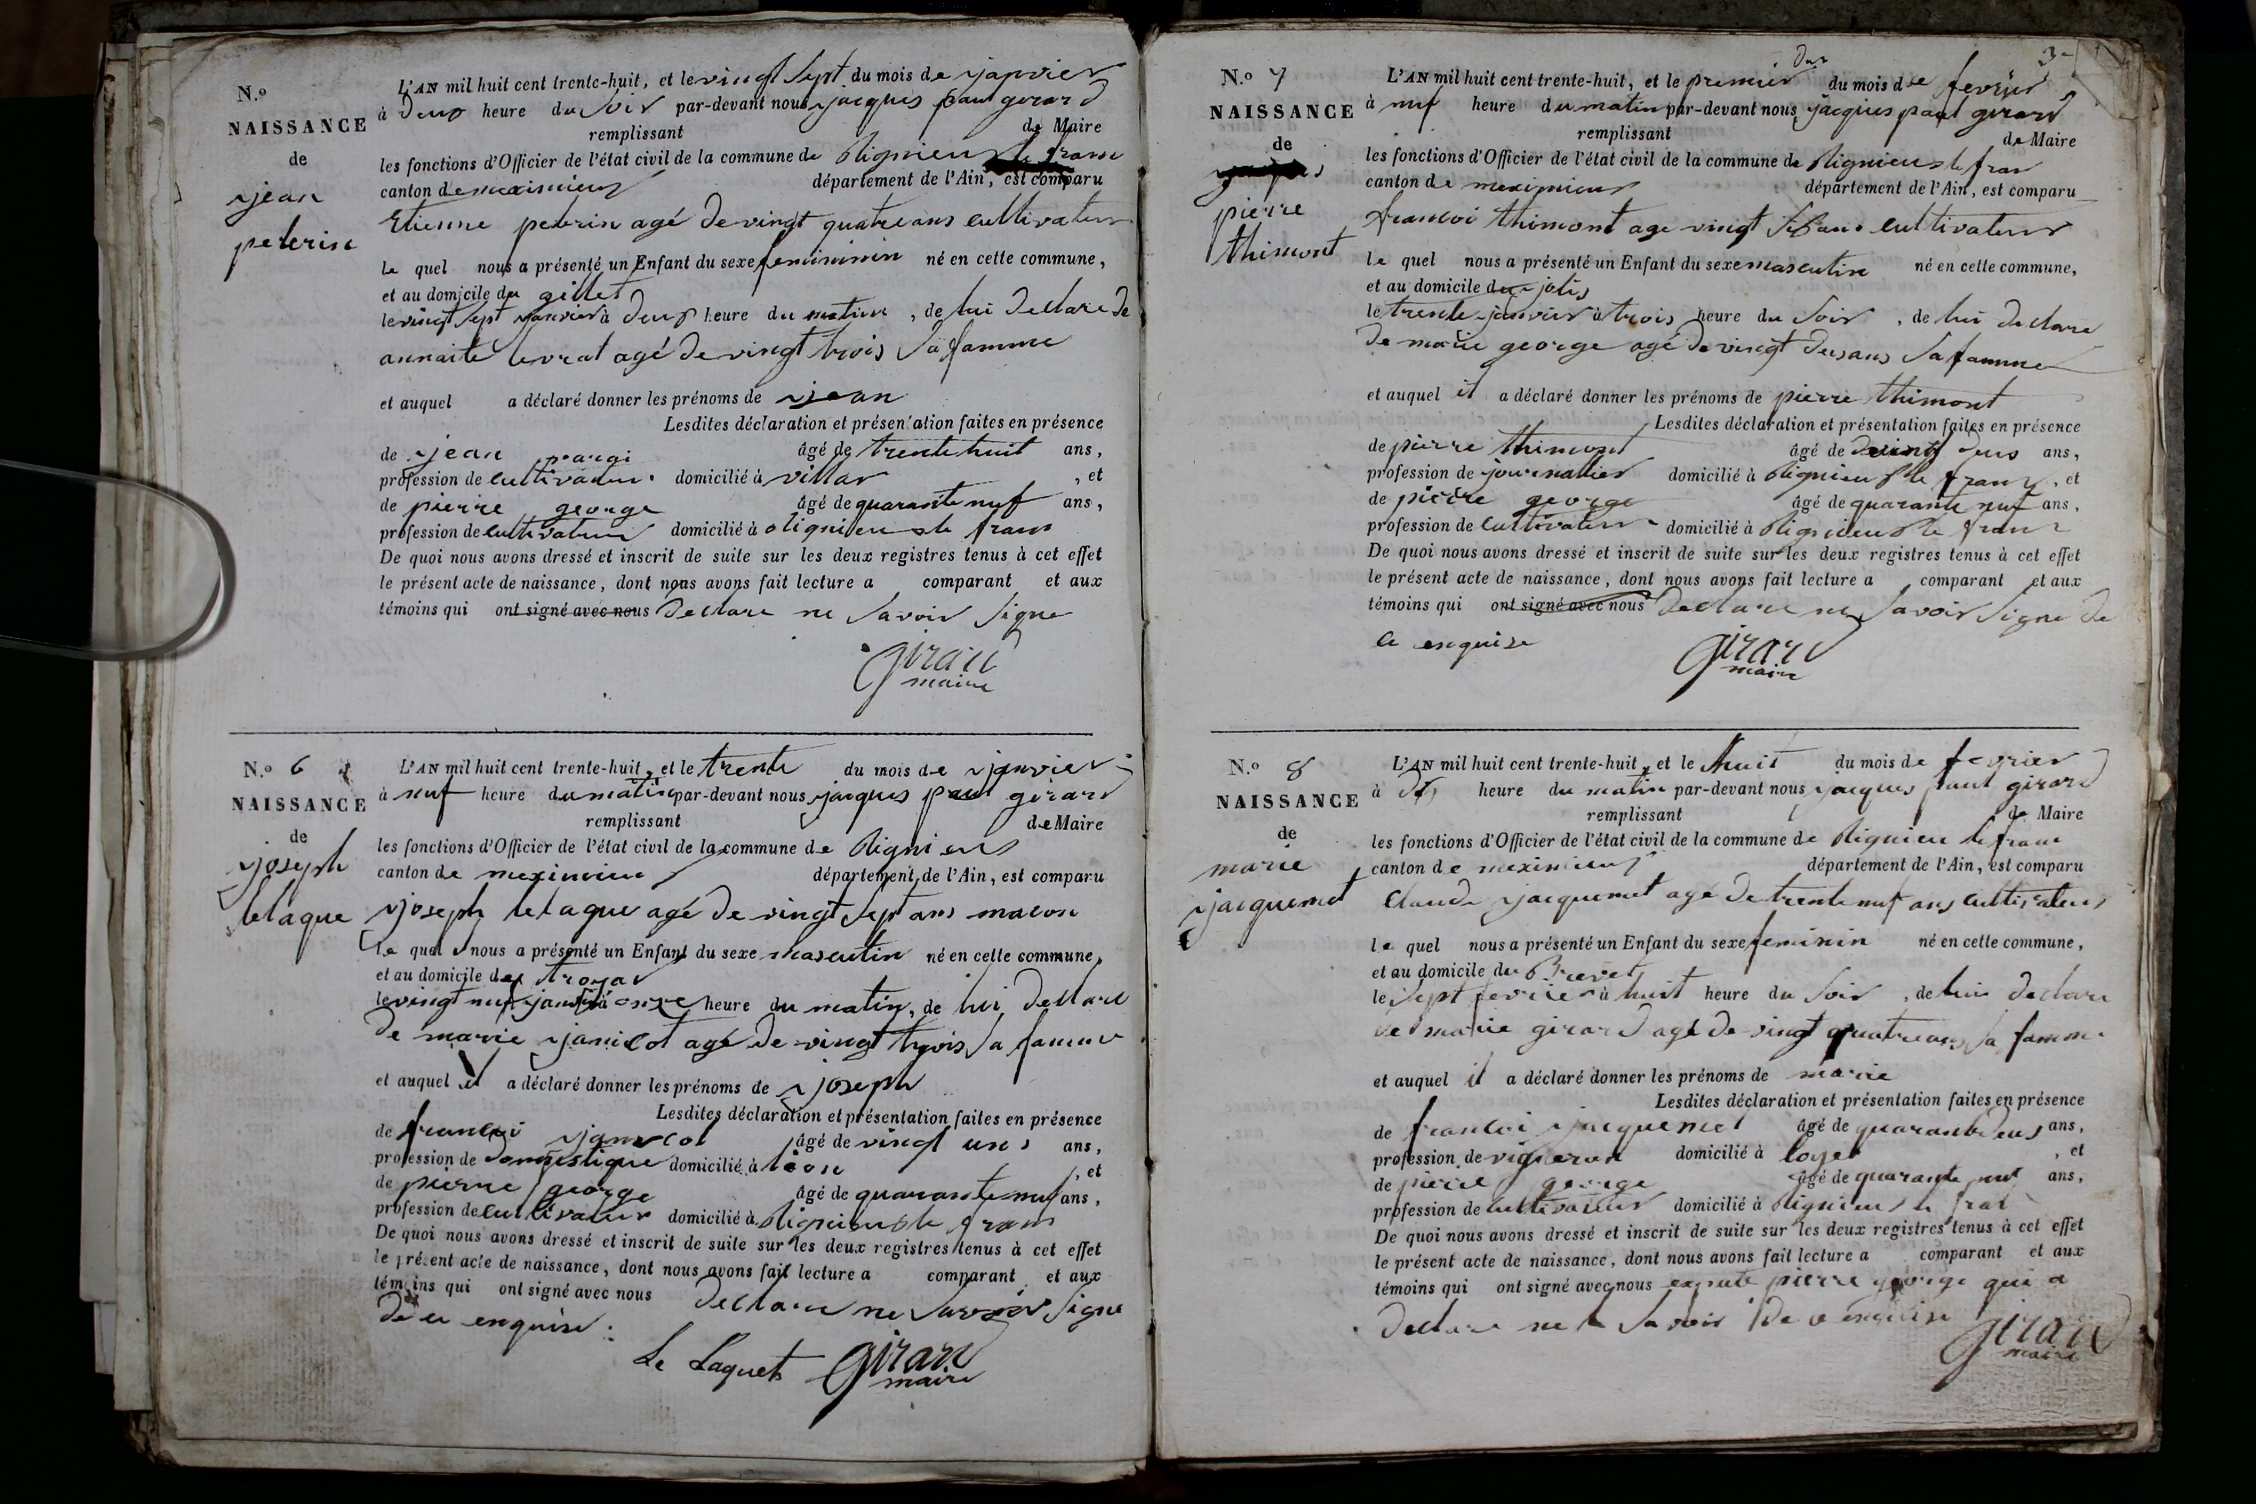 N.º
NAISSANCE
de
jean
pelerin
L'AN mil huit cent trente-huit, et le vingt sept du mois de janvier
à deux heure du soir par-devant nous jacques paul girard
remplissant de Maire
les fonctions d'Officier de l'état civil de la commune de Rignieux le franc
canton de meximieux département de l'Ain, est comparu
Etienne pelerin agé de vingt quatre ans cultivateur
le quel nous a présenté un Enfant du sexe né en cette commune,
et au domicile du gillet
le vingt sept janvier à deux heure du matin, de lui declare de
annaite levrat agé de vingt trois sa famme
et auquel a déclaré donner les prénoms de jean
Lesdites déclaration et présentation faites en présence
de jean âgé de trente huit ans,
profession de cultivateur domicilié à villar, et
de pierre george âgé de quarante nuf ans,
profession de cultivateur domicilié à Rignieux le franc
De quoi nous avons dressé et inscrit de suite sur les deux registres tenus à cet effet
le présent acte de naissance, dont nous avons fait lecture a comparant et aux
témoins qui ont signé avec nous declare ne savoir signe
girard
maire
N.º 6
NAISSANCE
de
joseph
lelaque
L'AN mil huit cent trente-huit, et le trente du mois de janvier
à nuf heure du matin par-devant nous jacques paul girard
remplissant de Maire
les fonctions d'Officier de l'état civil de la commune de Rignieux
canton de meximieux département de l'Ain, est comparu
joseph lelaque agé de vingt sept ans macon
le quel nous a présenté un Enfant du sexe masculin né en cette commune,
et au domicile de troyar
le vingt nuf janvier à onze heure du matin, de lui declare
de marie janicot agé de vingt trois sa famme
et auquel il a déclaré donner les prénoms de joseph
Lesdites déclaration et présentation faites en présence
de francoi janicot âgé de vingt uns ans,
profession de domestique domicilié à lion, et
de pierre george âgé de quarante nuf ans,
profession de cultivateur domicilié à Rignieux le franc
De quoi nous avons dressé et inscrit de suite sur les deux registres tenus à cet effet
le présent acte de naissance, dont nous avons fait lecture a comparant et aux
témoins qui ont signé avec nous declare ne savoir signe
de ce enquise
Le Laquet girard
maire
3
N.º 7
NAISSANCE
de
pierre
thimont
L'AN mil huit cent trente-huit, et le premier du mois de fevrier
à nuf heure du matin par-devant nous jacques paul girard
remplissant de Maire
les fonctions d'Officier de l'état civil de la commune de Rignieux le franc
canton de meximieux département de l'Ain, est comparu
francoi thimont age vingt ans cultivateur
le quel nous a présenté un Enfant du sexe masculin né en cette commune,
et au domicile du jolis
le trente janvier à trois heure du soir, de lui declare
de marie george agé de vingt deus ans sa famme
et auquel il a déclaré donner les prénoms de pierre thimont
Lesdites déclaration et présentation faites en présence
de pierre thimont âgé de vingt deus ans,
profession de journalier domicilié à Rignieux le franc, et
de pierre george âgé de quarante nuf ans,
profession de cultivateur domicilié à Rignieux le franc
De quoi nous avons dressé et inscrit de suite sur les deux registres tenus à cet effet
le présent acte de naissance, dont nous avons fait lecture a comparant et aux
témoins qui ont signé avec nous declare ne savoir signe de
ce enquise
girard
maire
N.º 8
NAISSANCE
de
marie
jacquemet
L'AN mil huit cent trente-huit, et le huit du mois de fevrier
à dix heure du matin par-devant nous jacques paul girard
remplissant de Maire
les fonctions d'Officier de l'état civil de la commune de Rignieu le franc
canton de meximieux département de l'Ain, est comparu
Claude jacquemet agé de trente nuf ans cultivateur
le quel nous a présenté un Enfant du sexe feminin né en cette commune,
et au domicile du Brevet
le sept fevrier à huit heure du soir, de lui declare
de marie girard agé de vingt quatre ans sa famme
et auquel il a déclaré donner les prénoms de marie
Lesdites déclaration et présentation faites en présence
de francoi jacquemet âgé de quarante deus ans,
profession de vigneron domicilié à loyes, et
de pierre george âgé de quarante nuf ans,
profession de cultivateur domicilié à Rignieux le franc
De quoi nous avons dressé et inscrit de suite sur les deux registres tenus à cet effet
le présent acte de naissance, dont nous avons fait lecture a comparant et aux
témoins qui ont signé avec nous pierre george qui a
declare ne le savoir de ce enquise
girard
maire